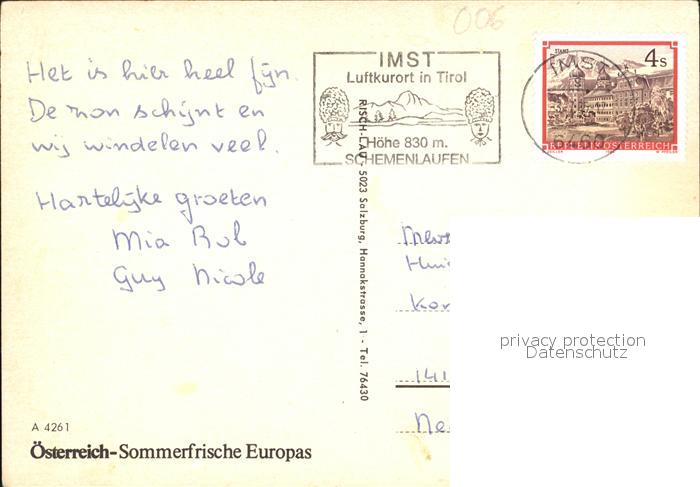 006
Het is hier heel fijn.
De zon schijnt en
wij windelen veel.
Hartelijke groeten
Mia Rob
Guy Nicole
IMST
Luftkurort in Tirol
Höhe 830 m.
SCHEMENLAUFEN
IMST
STAMS
4 S
REPUBLIK ÖSTERREICH
RISCH-LAU, 5023 Salzburg, Hannakstrasse, 1 - Tel. 76430
Kor
141
Ne
privacy protection
Datenschutz
A 4261
Österreich-Sommerfrische Europas